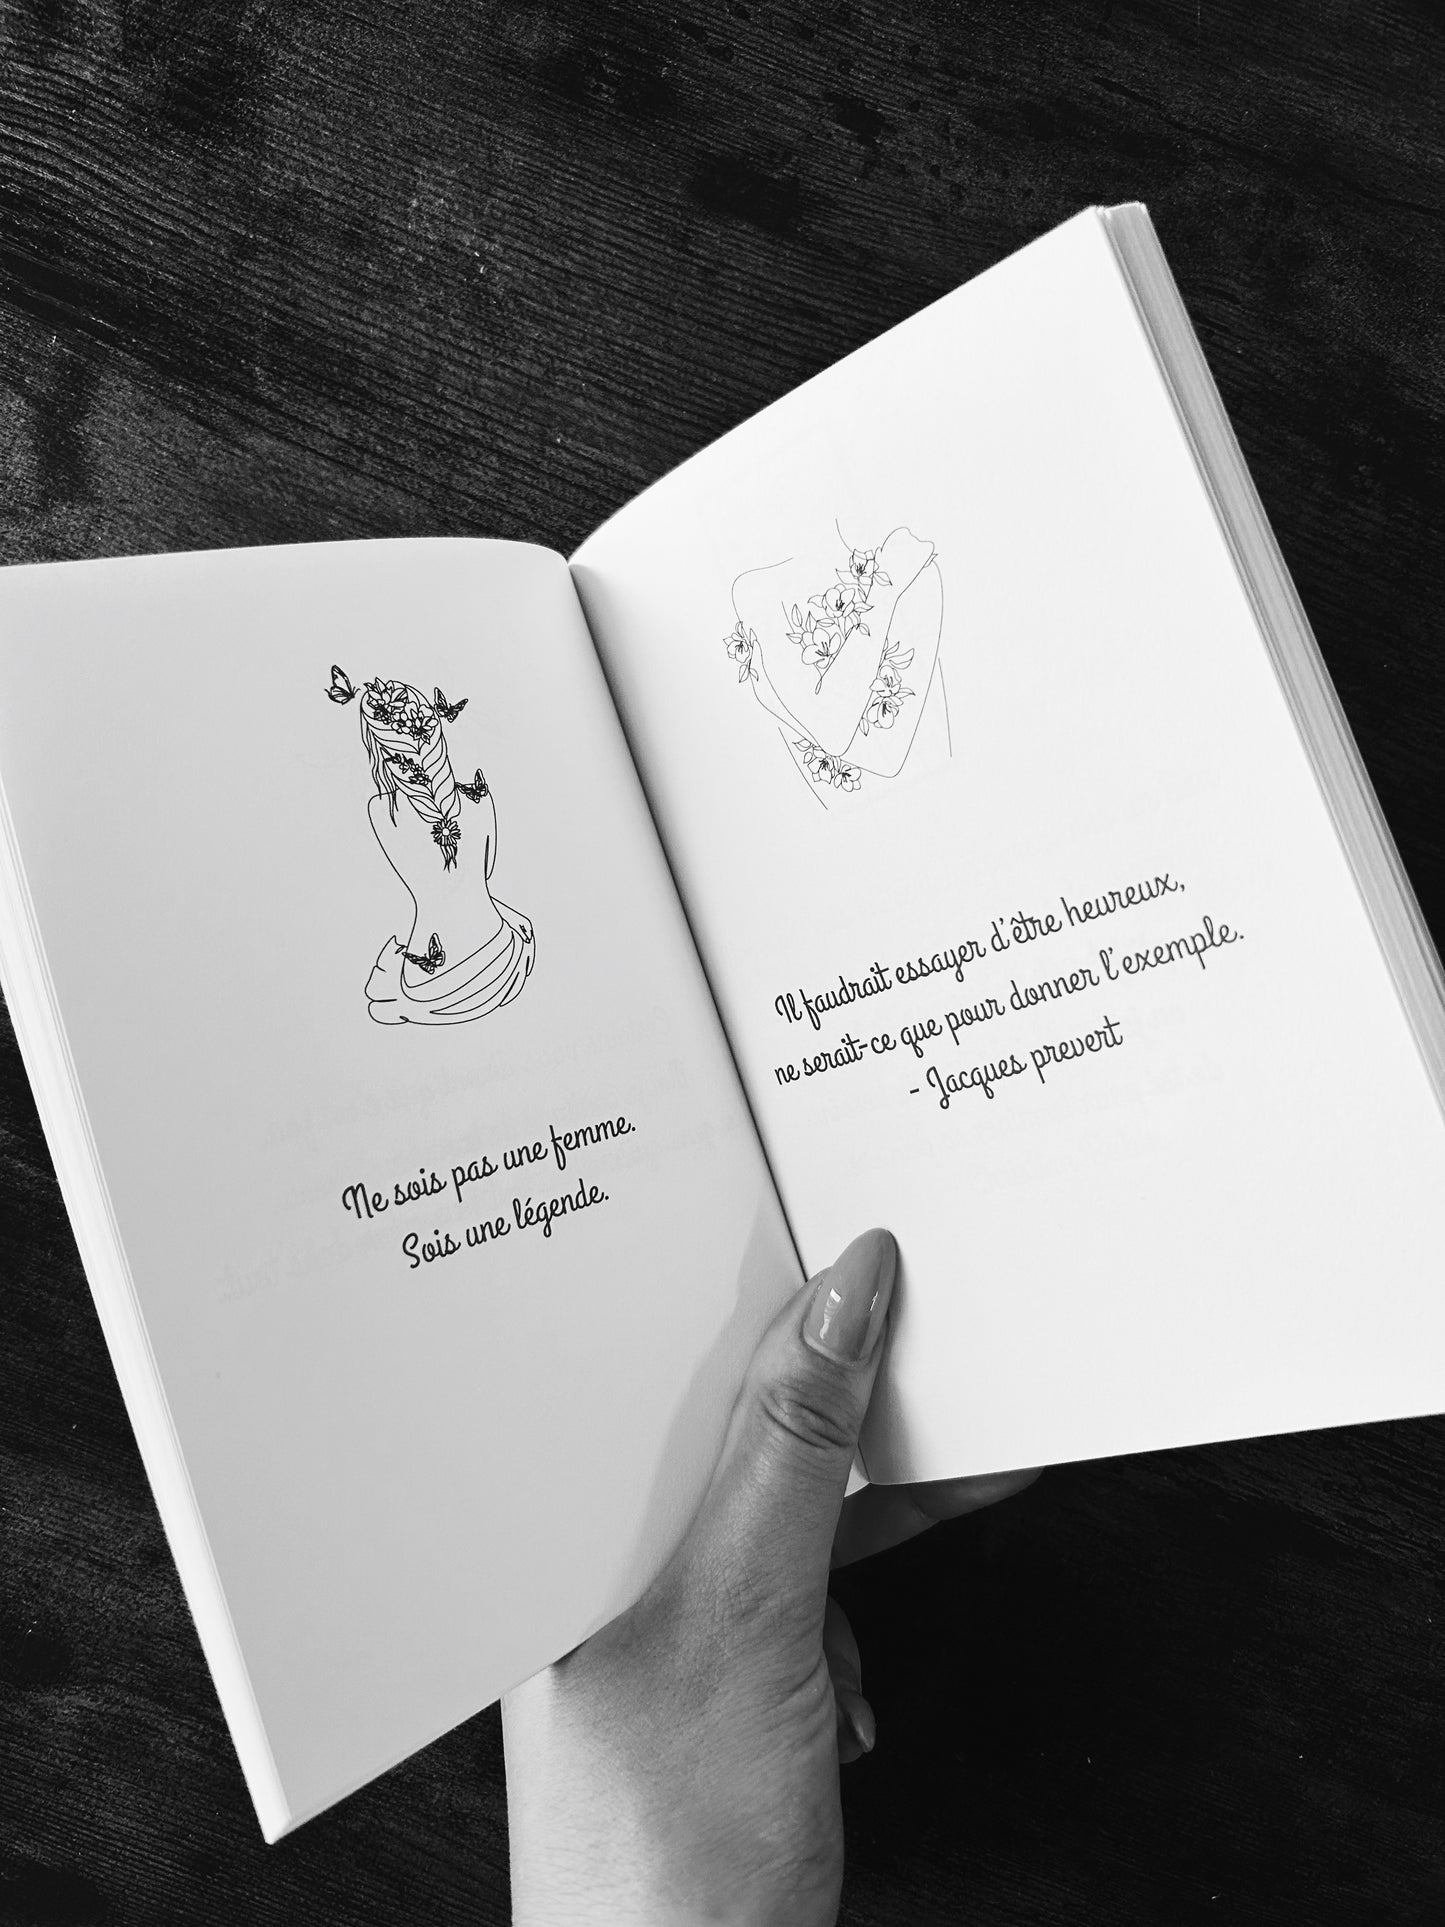 Ne sois pas une femme.
Sois une légende.
Il faudrait essayer d'être heureux,
ne serait-ce que pour donner l'exemple.
- Jacques prevert